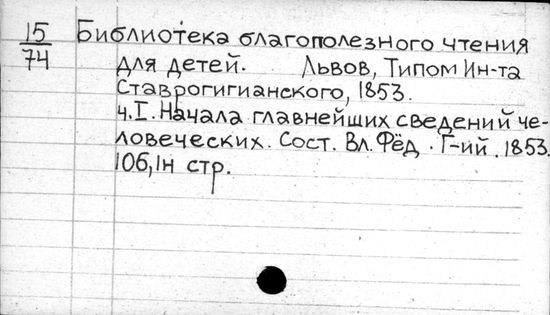 15
74
Библиотека благополезного чтения
для детей. Львов, Типом Ин-та
Ставрогигианского, 1853.
ч.I. Начала главнейших сведений че-
ловеческих. Сост. Вл. Фёд. Г-ий. 1853.
106, 1н стр.